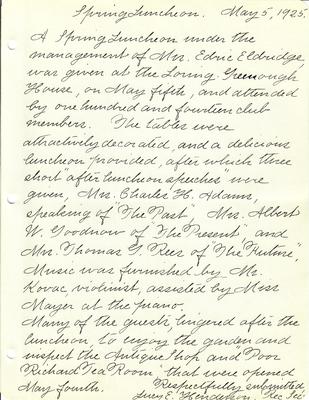 Spring Luncheon. May 5, 1925.
A Spring Luncheon under the
management of Mrs. Edric Eldridge,
was given at the Loring Greenough
House, on May fifth, and attended
by one hundred and fourteen club
members. The tables were
attractively decorated, and a delicious
luncheon provided, after which three
short "after luncheon speeches" were
given, Mrs. Charles H. Adams,
speaking of "The Past", Mrs. Albert
W. Goodnow of "The Present" and
Mrs. Thomas J. Rees of "The "Future",
Music was furnished by Mr.
Kovac, violinist, assisted by Miss
Mayer at the piano.
Many of the guests, lingered after the
luncheon, to enjoy the garden and
inspect the Antique Shop and "Poor
Richard Tea Room" that were opened
May fourth. Respectfully submitted,
Lucy E. Henderson, Rec Sec